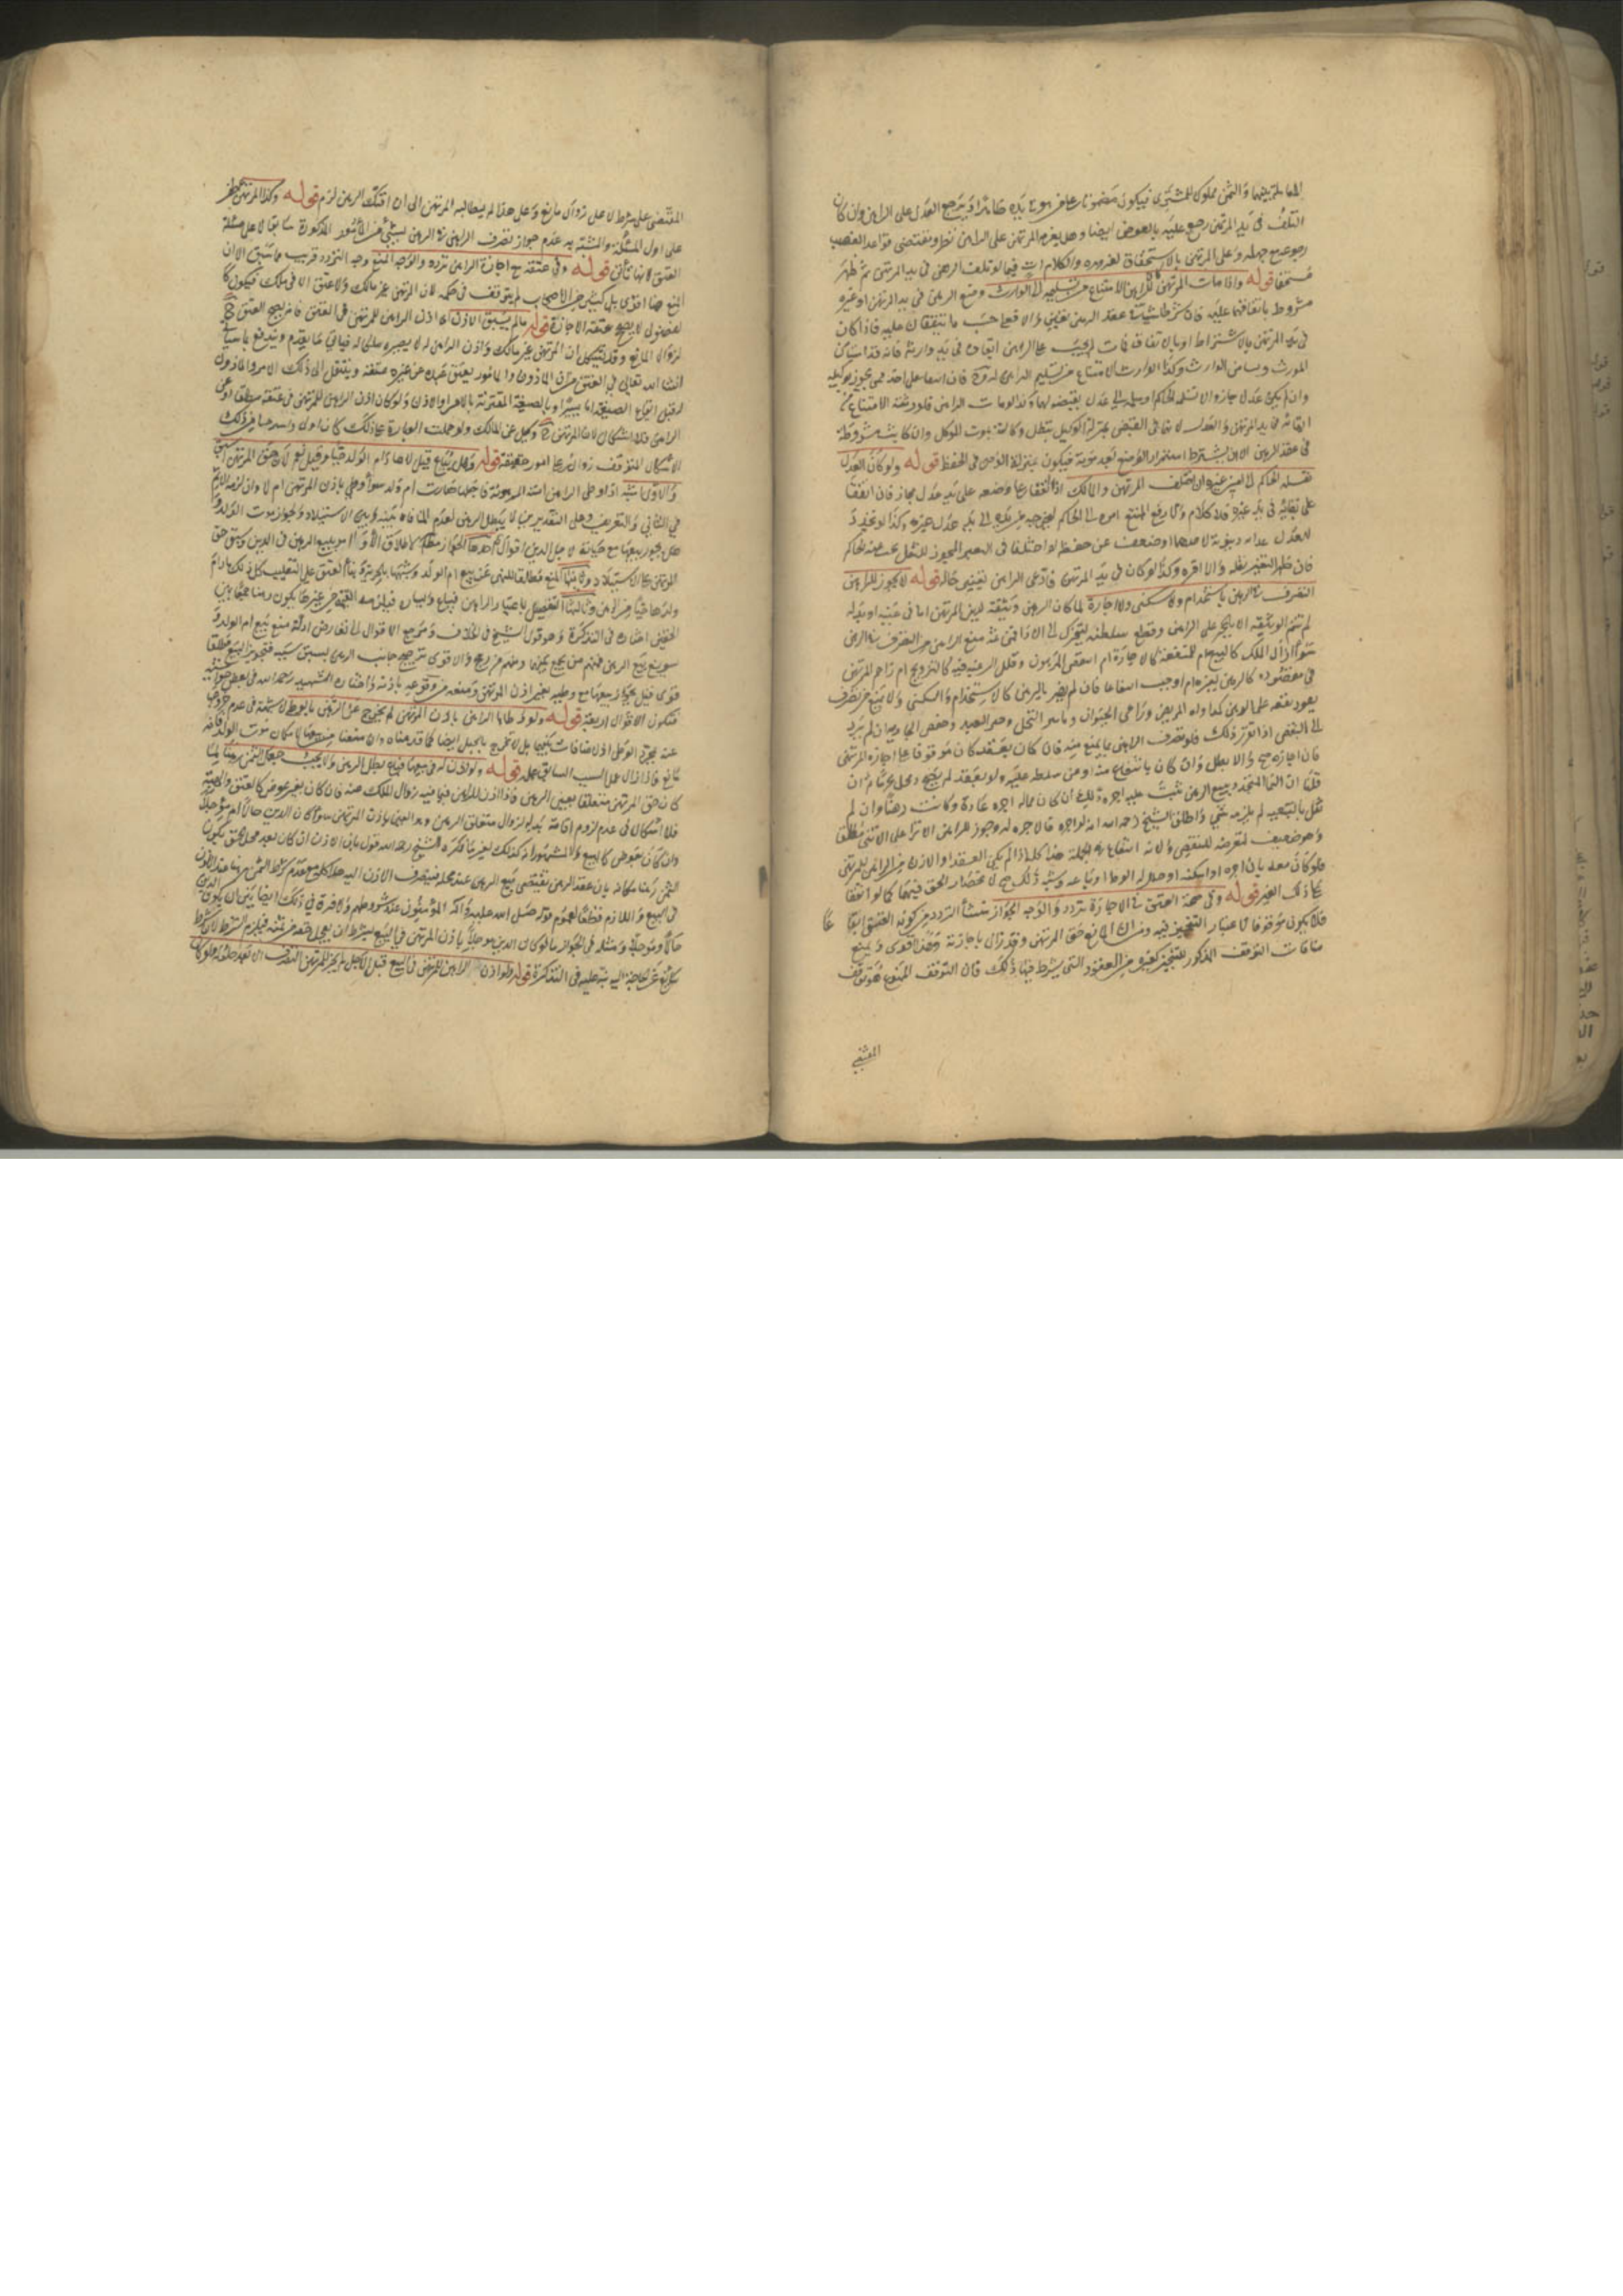 لما يلزمهما والثمن مملوك للمشتري فيكون مضمونا على من هو في يده ويرجع العدل على الراهن وان كان
التلف في يد المرتهن رجع عليه بالعوض ايضا وهل يغرم المرتهن على الراهن نظر ومقتضى قواعد الغصب
رجوعه مع جهله وعلى المرتهن بالاستحقاق لغروره والكلام آت فيما لو تلف الرهن في يد المرتهن ثم ظهر
مستحقا قوله واذا مات المرتهن كان للراهن الامتناع من تسليمه الى الوارث وضع الرهن في يد المرتهن او غيره
مشروط باتفاقهما عليه فان شرطا شيئا في عقد الرهن تعين والا فعلى حسب ما يتفقان عليه فاذا كان
في يد المرتهن بالاشتراط او بالاتفاق فمات لم يجب على الراهن ابقاؤه في يد وارثه فانه قد استامن
المورث ولم يستامن الوارث وكذا الوارث الامتناع من تسليم الراهن له فان اتفقا على احد ممن يجوز توكيله
وان لم يكن عدل جاز والا تسلمه الحاكم او سلمه الى عدل يقبضه لهما وكذا لو مات الراهن فلورثته الامتناع من
ابقائه في يد المرتهن والعدل لانهما في القبض بمنزلة الوكيل تبطل وكالته بموت الموكل وان كانت مشروطة
في عقد الرهن الا ان يشترط استمرار الوضع بعد موته فيكون بمنزلة الوصي في الحفظ قوله ولو كان العدل
نقله الحاكم الى امين غيره ان اختلف المرتهن والمالك اذا اتفقا على وضعه على يد عدل جاز فان اتفقا
على نقله في يد غيره فلا كلام والا رفع الممتنع امره الى الحاكم
العدل عداوة دنيوية لاحدهما او ضعف عن حفظه او اختلفا في التغير المجوز للنقل بحث عنه الحاكم
فان ظهر التغير نقله والا اقره وكذا لو كان في يد المرتهن فادعى الراهن تغيير حاله قوله لا يجوز للراهن
التصرف في الرهن باستخدام ولا سكنى ولا اجارة لما كان الرهن وثيقة لدين المرتهن اما في عينه او بدله
لم تتم الوثيقة الا بالحجر على الراهن وقطع سلطنته ليتحرك الى الاداء فمن ثم منع الراهن من التصرف في الرهن
سواء ازال الملك كالبيع ام المنفعة كالاجارة ام انتقص المرهون وقلل الرغبة فيه كالتزويج ام زاحم المرتهن
في مقصوده كالرهن لغيره ام اوجب انتفاعا فان لم يضر بالرهن كالاستخدام والسكنى ولا يمنع من تصرف
يعود نفعه على الرهن كمداواة المريض ورعي الحيوان وتابير النخل وختن العبد وخفض الجارية ان لم يؤد
الى النقص اذا تقرر ذلك فلو تصرف الراهن بما يمنع منه فان كان بعقد كان موقوفا على اجازة المرتهن
فان اجازه صح والا بطل وان كان بانتفاع منه او ممن سلطه عليه ولو بعقد لم يصح وفعل محرما
قلنا ان النماء المتجدد يتبع الرهن ثبت عليه اجرة ذلك ان كان مما له اجرة عادة وكانت رهنا وان لم
نقل بالتبعية لم يلزمه شيء واطلق الشيخ رحمه الله انه لو اجره فالاجرة له وجوز للراهن الانزاء على الانثى مطلقا
وهو ضعيف لتعرضه للنقص ولانه انتفاع في الجملة هذا كله اذا لم يكن العقد او الاذن من الراهن للمرتهن
فلو كان معه بان اجره او اسكنه او حلل له الوطء او باعه وشبه ذلك صح لانحصار الحق فيهما كما لو اتفقا
على ذلك للغير قوله وفي صحة العتق مع الاجازة تردد والوجه الجواز منشأ التردد من كونه العتق ايقاعا
فلا يكون موقوفا لاعتبار التنجيز فيه ومن ان المانع حق المرتهن وقد زال باجازته وهذا اقوى ويمنع
منافات التوقف المذكور للتنجيز كغيره من العقود التي يشترط فيها ذلك فان التوقف الممنوع هو توقف
المقتضي
المقتضي على شرط لا على زوال مانع وعلى هذا لو لم يبطله المرتهن الى ان افتك الرهن لزم قوله وكذا المرتهن
على اول المسئلة والمشبه به عدم جواز تصرف الراهن في الرهن بشيء من الامور المذكورة سابقا لا على مسئلة
العتق لانها تاتي قوله وفي عتقه مع اجازة الراهن تردد والوجه المنع وجه التردد قريب مما سبق الا ان
المنع هنا اقوى بل كثير من الاصحاب لم يتوقف في حكمه لان المرتهن غير مالك ولا عتق الا في ملك فيكون كا
لفضولي لا يصح عتقه الاجازة قوله ما لم يسبق الاذن اي اذن الراهن للمرتهن في العتق فانه يصح العتق ح
لزوال المانع وقد يشكل ان المرتهن غير مالك واذن الراهن له لا يصيره مالكا له فياتي ما تقدم ويندفع بما سياتي
انشاء الله تعالى في العتق من ان الماذون والمامور بعتق عبده عن غيره عتقه وينتقل الى ذلك الامر والماذون
له قبل ايقاع الصيغة انا يسيرا او بالصيغة المقترنة بالامر او الاذن ولو كان اذن الراهن للمرتهن في عتقه مطلقا او عن
الراهن فلا اشكال لان المرتهن ح وكيل عن المالك ولو حملت العبارة على ذلك كان اولى واسد مما مر ذلك
الاشكال المتوقف زواله على امور خفية قوله وهل تباع قيل لا ما دام الولد حيا وقيل نعم لان حق المرتهن اسبق
والاول اشبه اذا وطى الراهن امته المرهونة فاحبلها صارت ام ولد سواء وطى باذن المرتهن ام لا وان لزمه الاثم
في الثاني والتعزير وعلى التقديرين لا يبطل الرهن لعدم المنافاة بينه وبين الاستيلاد ولجواز موت الولد و
هل يجوز بيعها مع حياته لاجل الدين اقوال احدها الجواز مطلقا لاطلاق الاوامر ببيع الرهن في الدين وسبق حق
المرتهن على الاستيلاد وثانيها المنع مطلقا للنهي عن بيع ام الولد وتشبثها بالحرية وبناء العتق على التغليب كل ذلك ما دام
ولدها حيا وثالثها التفصيل باعسار الراهن فيباع ويساره فيلزمه القيمة من غيرها يكون رهنا جمعا بين
الحقين اختاره في التذكرة وهو قول الشيخ في الخلاف ومرجع الاقوال الى تعارض ادلة منع بيع ام الولد و
تسويغ بيع الرهن فمنهم من جمع بينهما ومنهم من رجح والاقوى ترجيح جانب الرهن بسبق سببه فتجويز البيع مطلقا
قوي قيل بجواز بيعها مع وطيه بغير اذن المرتهن ومنعه مع وقوعه باذنه واختاره الشهيد رحمه الله في بعض حواشيه
فتكون الاقوال اربعة قوله ولو وطئها الراهن باذن المرتهن لم يخرج عن الرهن بالوطء لا شبهة في عدم خروجها
عنه بمجرد الوطء اذ لا منافات بينهما بل لا تخرج بالحبل ايضا كما قدمناه وان منعنا من بيعها لامكان موت الولد فانه
مانع فاذا زال عمل السبب السابق عمله قوله ولو اذن له في بيعها فباع بطل الرهن ولا يجب جعل الثمن رهنا لما
كان حق المرتهن متعلقا بعين الرهن فاذا اذن للراهن فيما فيه زوال الملك عنه فان كان بغير عوض كالعتق والهبة
فلا اشكال في عدم لزوم اقامة بدله لزوال متعلق الرهن وهو العين باذن المرتهن سواء كان الدين حالا ام مؤجلا
وان كان بعوض كالبيع فالمشهور انه كذلك لغير ما ذكره الشيخ رحمه الله قول بان الاذن ان كان بعد محل الحق يكون
الثمن رهنا مكانه بان عقد الرهن يقتضي بيع الرهن عند محله فينصرف الاذن اليه هذا كله مع عدم شرط الثمن رهنا عند الاذن
في البيع واللازم قطعا لعموم قوله صلى الله عليه وآله المؤمنون عند شروطهم ولا فرق في ذلك ايضا بين ان يكون الدين
حالا ومؤجلا ومثله في الجواز ما لو كان الدين مؤجلا باذن المرتهن في البيع بشرط ان يعجل حقه من ثمنه فيلزم الشرط لان شرط
سائغ تدعو الحاجة اليه نبه عليه في التذكرة قوله ولو اذن الراهن للمرتهن في البيع قبل الاجل لم يجز للمرتهن التصرف الا بعد حلوله ولو كان